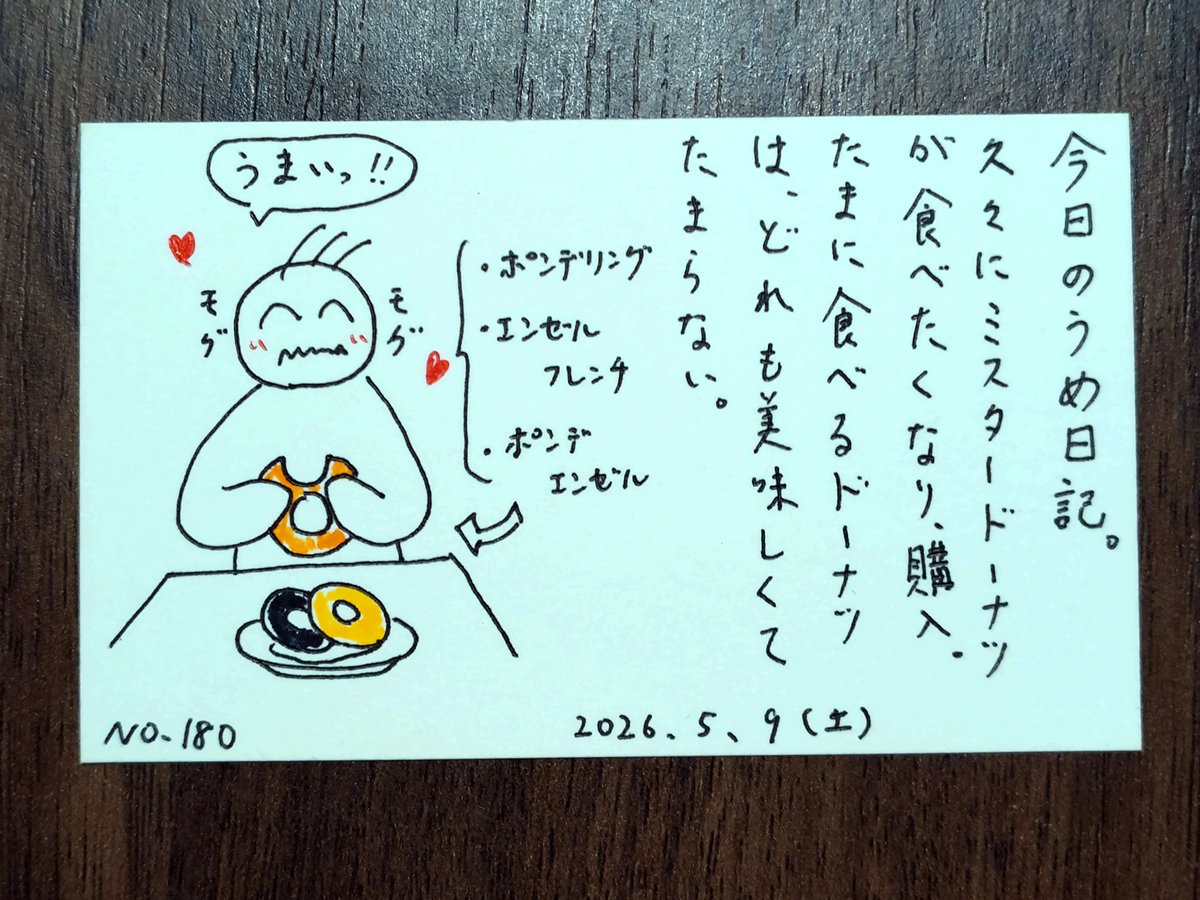 今日のうめ日記。
久々にミスタードーナツ
が食べたくなり、購入.
たまに食べるドーナツ
は、どれも美味しくて
たまらない。
・ポンデリング
・エンゼル
フレンチ
・ポンデ
エンゼル
うまいっ!!
モグ
モグ
NO.180
2026.5、9(土)